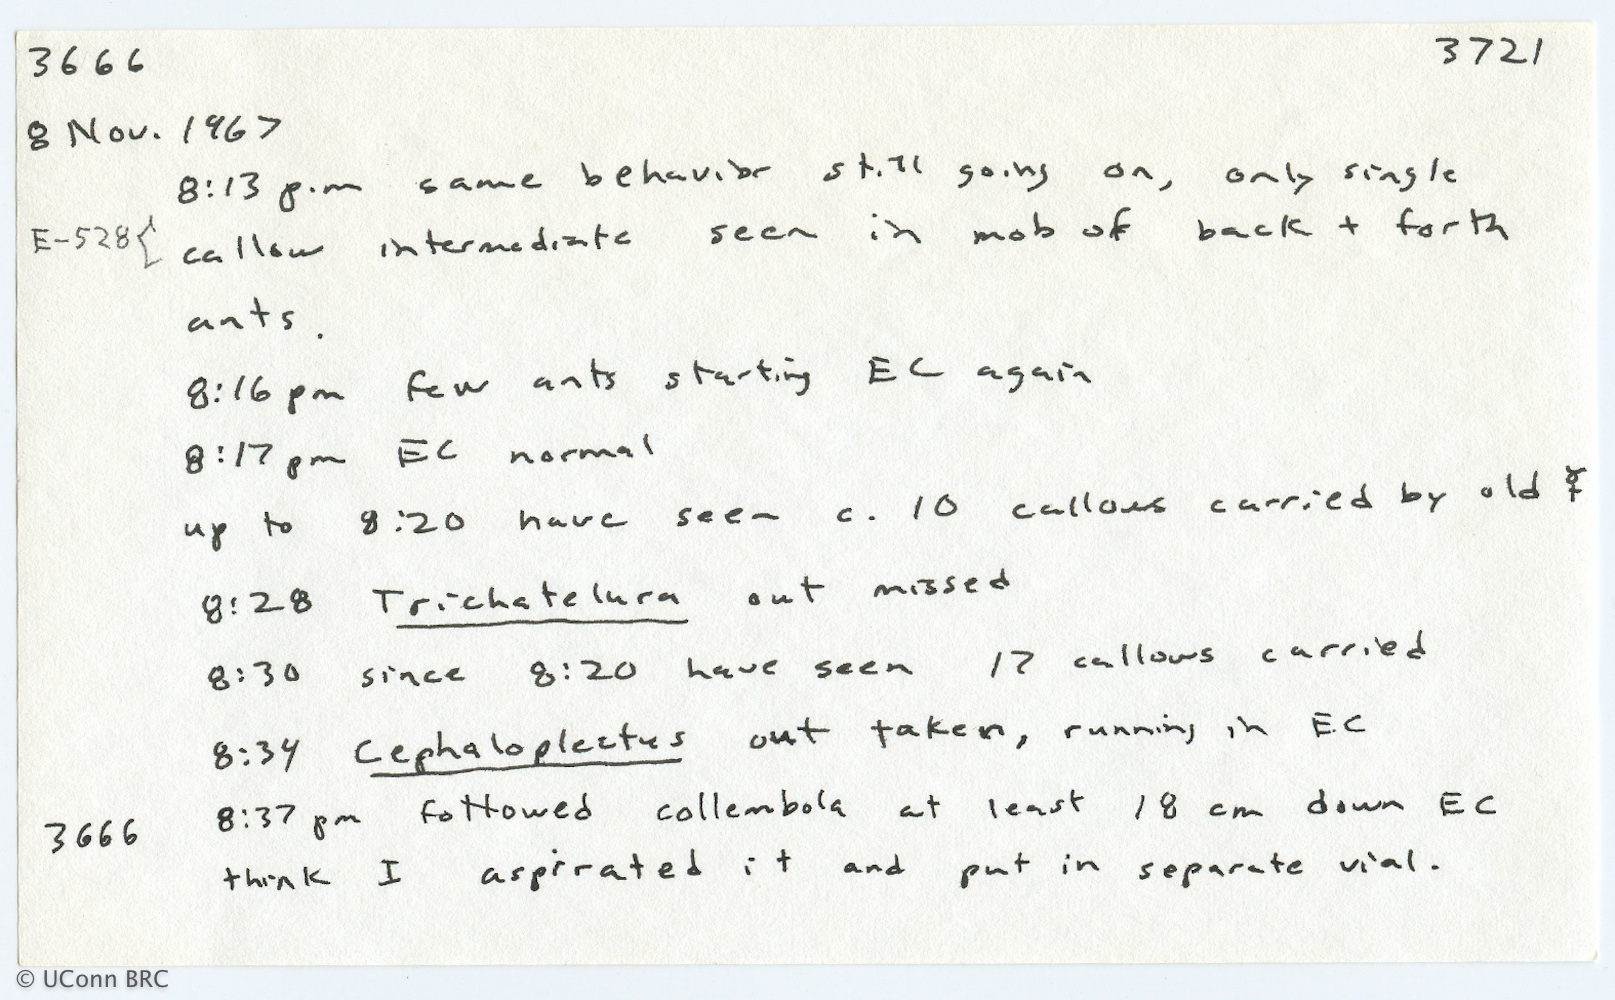 3666 3721
8 Nov. 1967
8:13 p.m same behavior still going on, only single
E-528{ callow intermediate seen in mob of back + forth
ants.
8:16 pm few ants starting EC again
8:17 pm EC normal
up to 8:20 have seen c. 10 callows carried by old ☿
8:28 Trichatelura out missed
8:30 since 8:20 have seen 17 callows carried
8:34 Cephaloplectus out taken, running in EC
3666 8:37 pm followed collembola at least 18 cm down EC
think I aspirated it and put in separate vial.
© UConn BRC